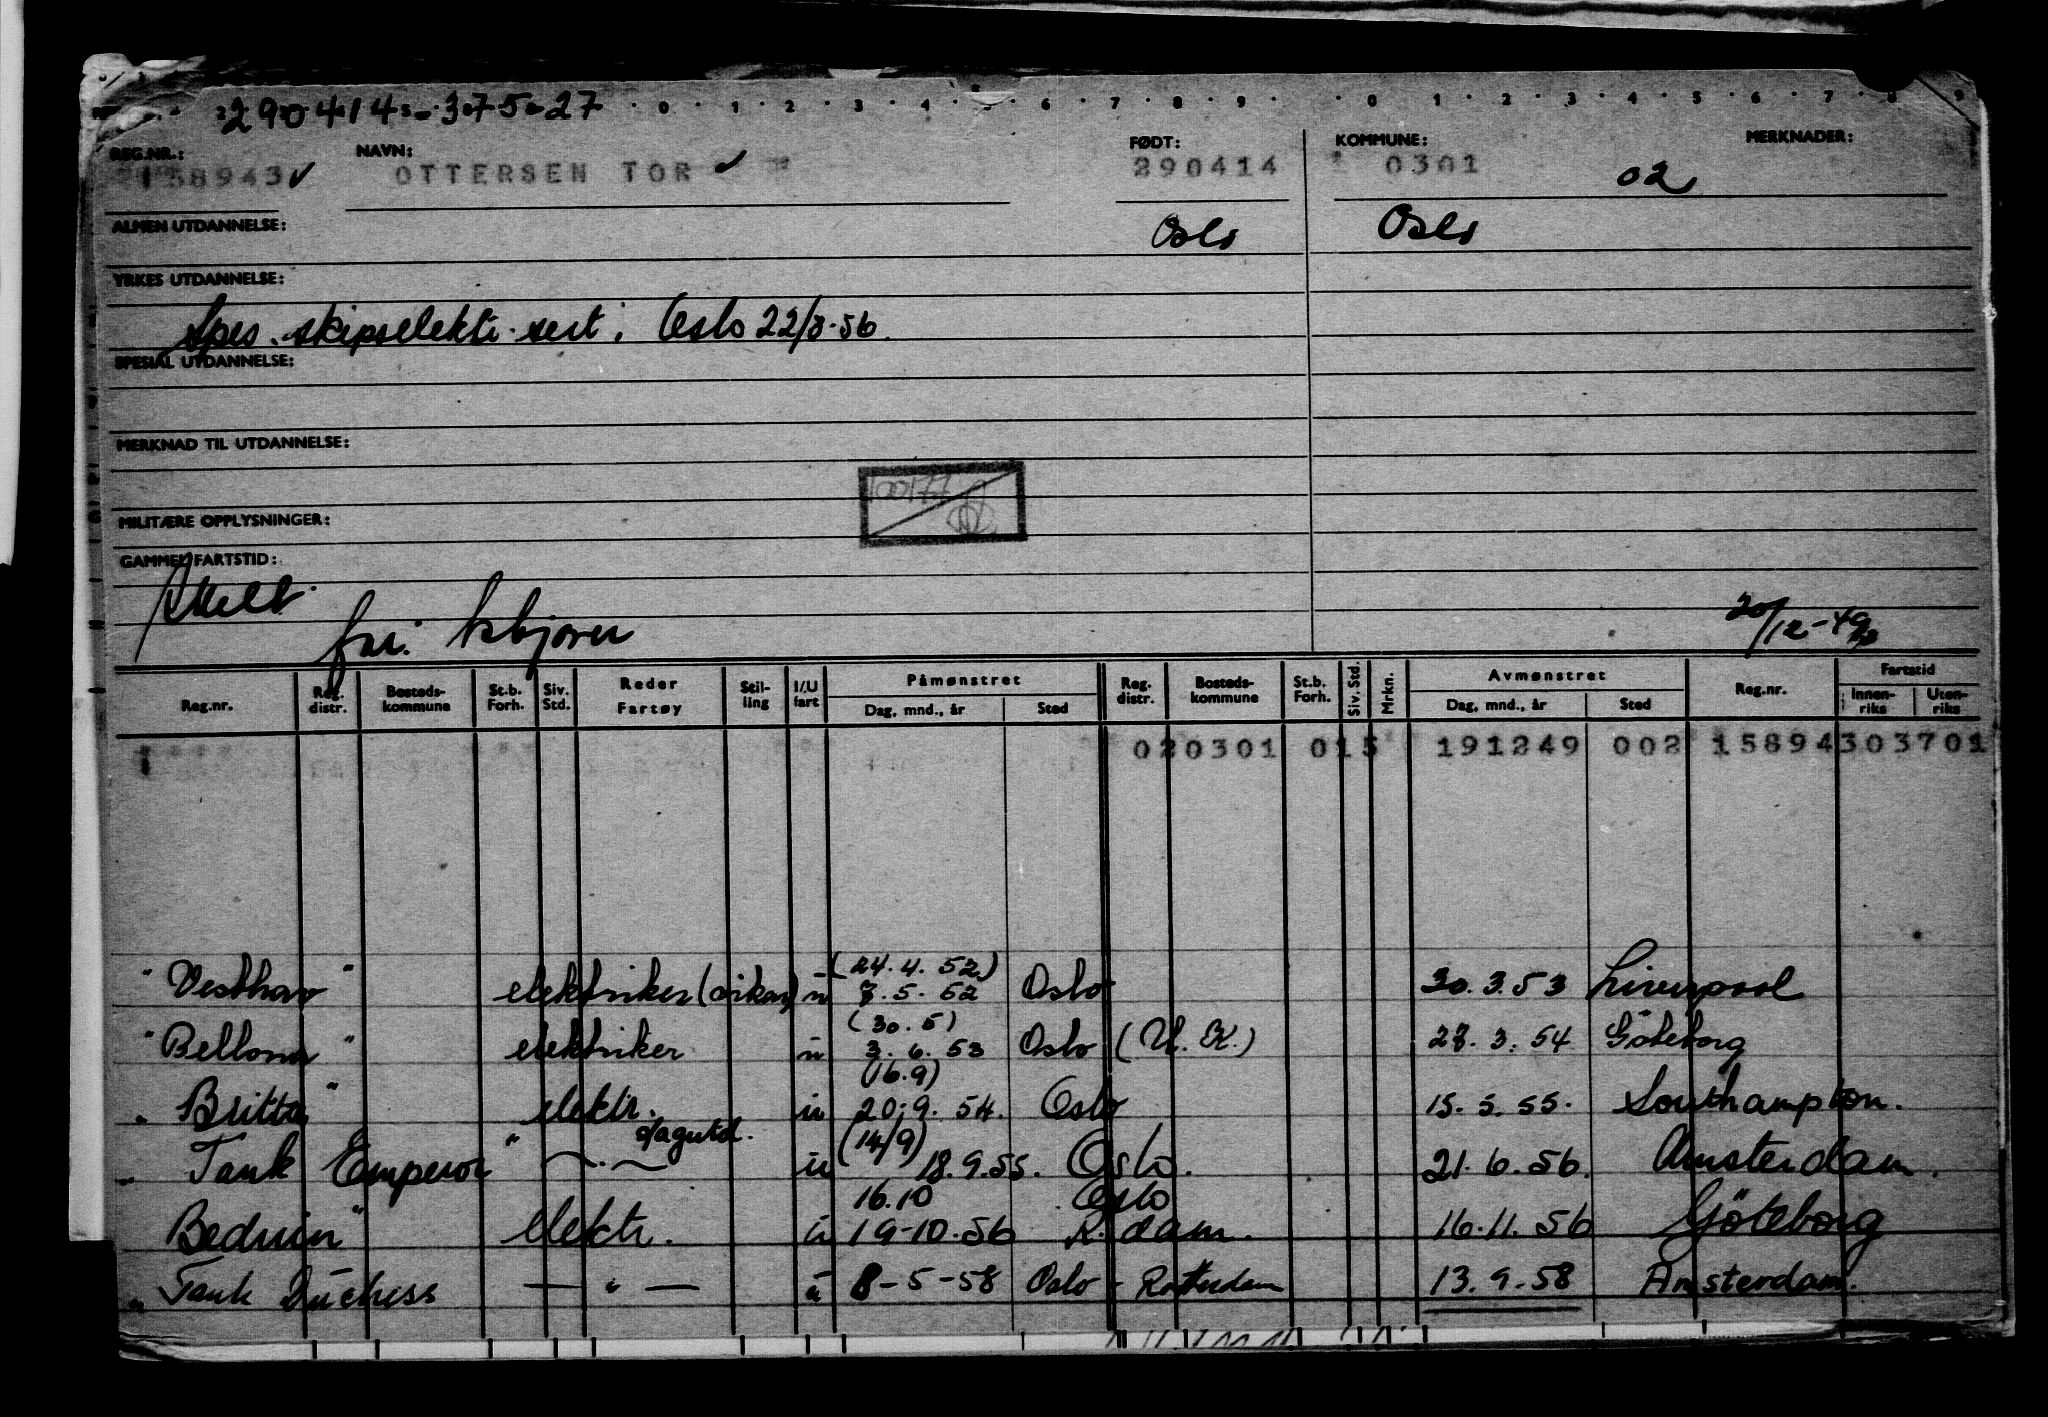 290414 - 375 - 27
0 · 1 · 2 · 3 · 4 · 5 · 6 · 7 · 8 · 9 · · 0 · 1 · 2 · 3 · 4 · 5 · 6 · 7 · 8 · 9
REG.NR.: NAVN: FØDT: KOMMUNE: MERKNADER:
158943 ✓ OTTERSEN TOR ✓ 290414 0301 02
ALMEN UTDANNELSE: Oslo Oslo
YRKES UTDANNELSE:
Spes. skipselektr. sert. Oslo 22/8-56.
SPESIAL UTDANNELSE:
MERKNAD TIL UTDANNELSE:
100177
MILITÆRE OPPLYSNINGER:
GAMMEL FARTSTID:
20/12-49
Reg.nr. Reg. distr. Bosteds-kommune St.b. Forh. Siv. Std. Reder Fartøy Stil-ling I/U fart Påmønstret Dag, mnd., år Sted Reg. distr. Bosteds-kommune St.b. Forh. Siv. Std. Mrkn. Avmønstret Dag, mnd., år Sted Reg.nr. Fartstid Innen-riks Uten-riks
020301 015 191249 002 15894303701
(24.4.52)
"Vesthav" elektriker ( ) u 7.5.52 Oslo 30.3.53 Liverpool
(30.5)
"Bellona" elektriker u 3.6.53 Oslo (U.K.) 28.3.54 Göteborg
(16.9)
"Britta" elektr. u 20.9.54. Oslo 15.5.55. Southampton.
dagutd.
(14/9)
"Tank Emperor" u 18.9.55. Oslo. 21.6.56. Amsterdam.
16.10 Oslo
Beduin" elektr. u 19-10.56 R.dam. 16.11.56 Göteborg
"Tank Duchess — " — u 8-5-58 Oslo - Rotterdam 13.9.58 Amsterdam.